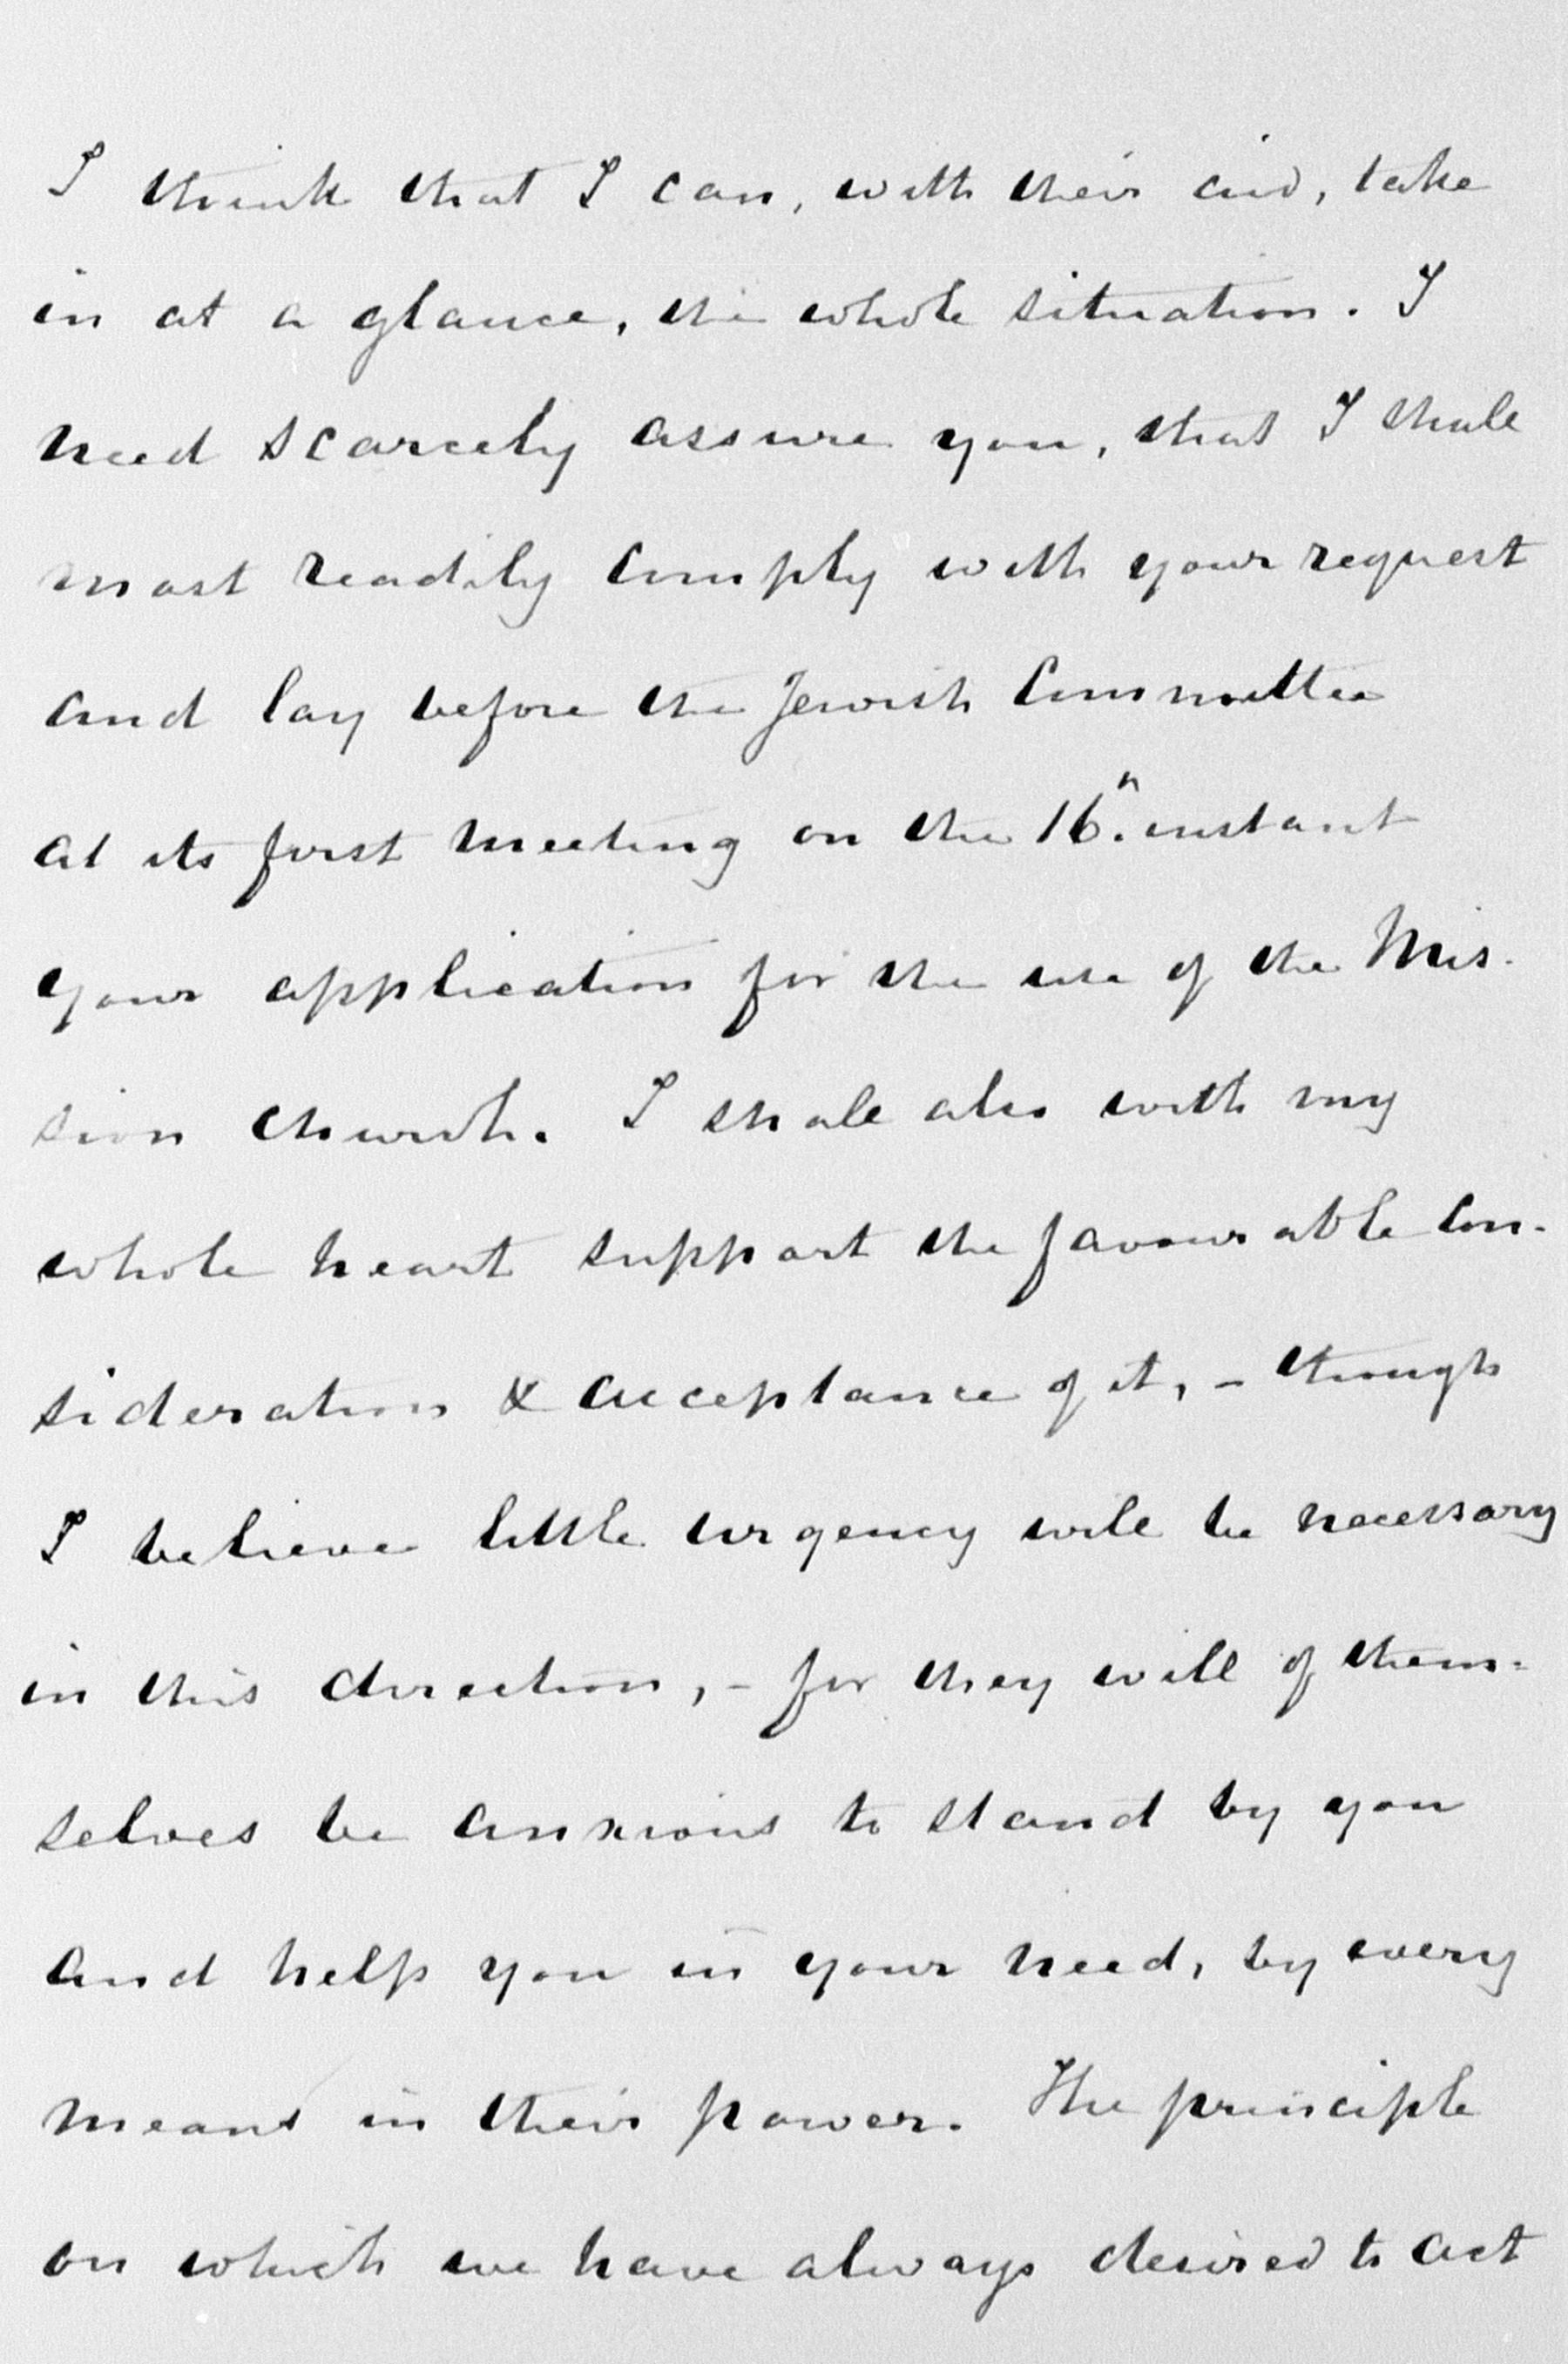 I think that I can, with their aid, take
in at a glance, the whole situation. I
need scarcely assure you, that I shall
most readily comply with your request
and lay before the Jewish Committee
at its first meeting on the 16th. instant
your application for the use of the Mis-
sion Church. I shall also with my
whole heart support the favourable con-
sideration & acceptance of it, - though
I believe little urgency will be necessary
in this direction, - for they will of them-
selves be anxious to stand by you
and help you in your need, by every
means in their power. The principle
on which we have always desired to act